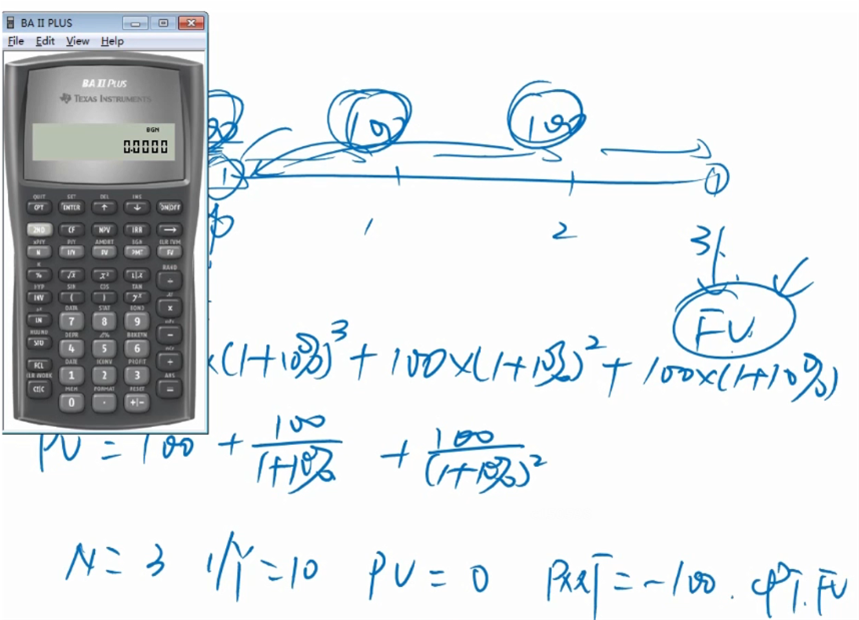 BA II PLUS
File Edit View Help
BA II PLUS
TEXAS INSTRUMENTS
BGN
0.0000
QUIT SET DEL INS
CPT ENTER ↑ ↓ ON/OFF
2ND CF NPV IRR →
xP/Y P/Y AMORT BGN CLR TVM
N I/Y PV PMT FV
K RAND
% √x x² 1/x ÷
HYP SIN COS TAN
INV ( ) yˣ x
DATA STAT BOND
LN 7 8 9 −
ROUND DEPR Δ% BRKEVN
STO 4 5 6 +
DATE ICONV PROFIT ANS
RCL 1 2 3 =
CLR WORK MEM FORMAT RESET
CE|C 0 . +|−
100 100
1 1
1 2 3
FV
x(1+10%)³ + 100x(1+10%)² + 100x(1+10%)
PV = 100 + 100/(1+10%) + 100/(1+10%)²
N = 3 I/Y = 10 PV = 0 PMT = -100. CPT. FV